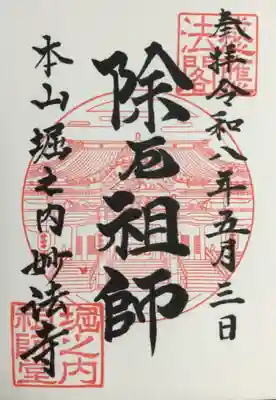 奉拝令和八年五月三日
除厄祖師
本山堀之内妙法寺
堀之内
祖師堂